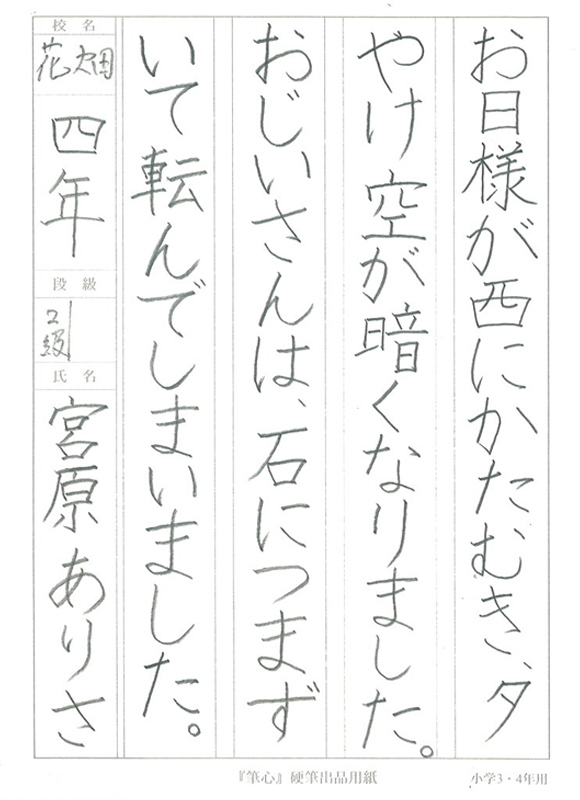 お日様が西にかたむき、夕
やけ空が暗くなりました。
おじいさんは、石につまず
いて転んでしまいました。
校名
花畑
四年
段級
2級
氏名
宮原ありさ
『筆心』硬筆出品用紙
小学3・4年用